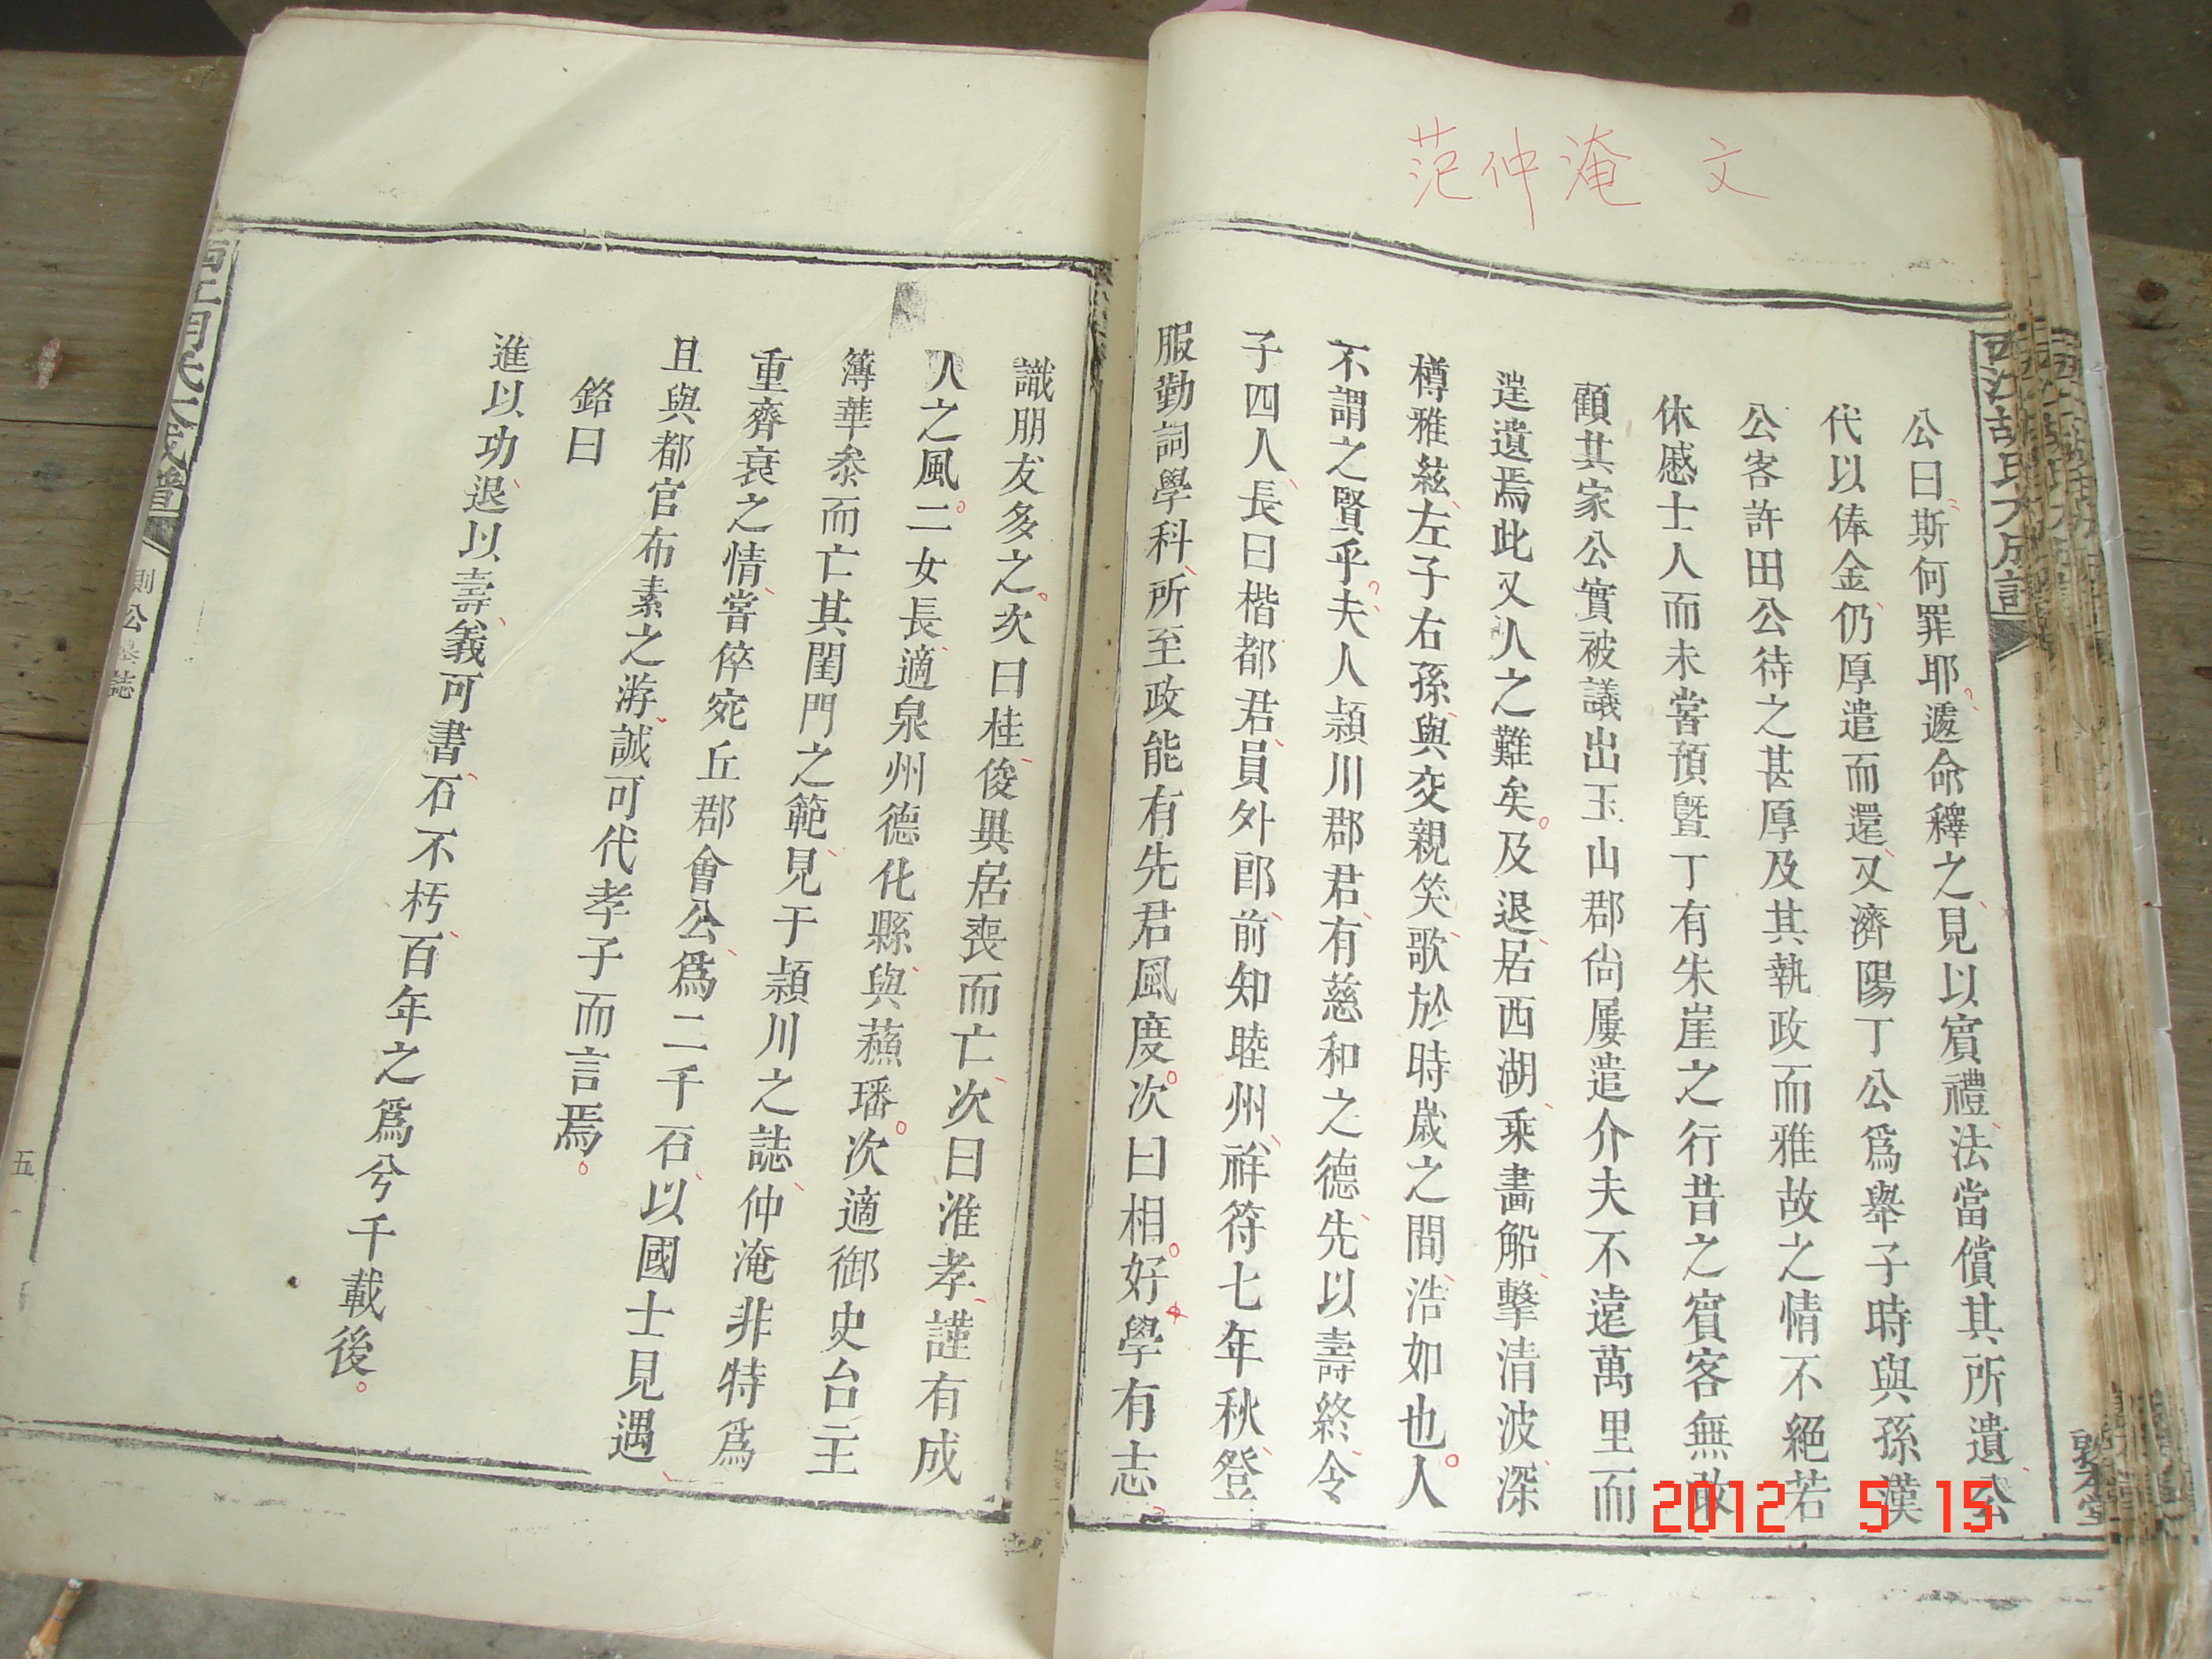 范仲淹 文
西江胡氏大成譜
公曰斯何罪耶遽命釋之見以賓禮法當償其所遺公
代以俸金仍厚遣而還又濟陽丁公爲舉子時與孫漢
公客許田公待之甚厚及其執政而雅故之情不絕若
休慼士人而未嘗預暨丁有朱崖之行昔之賓客無敢
顧其家公實被議出玉山郡尙屢遣介夫不遠萬里而
遑遺焉此又人之難矣及退居西湖乘畵船擊清波深
樽雅絃左子右孫與交親笑歌於時歲之間浩如也人
不謂之賢乎夫人潁川郡君有慈和之德先以壽終令
子四人長曰楷都君員外郎前知睦州祥符七年秋登
服勤詞學科所至政能有先君風度次曰相好學有志
識朋友多之次曰桂俊異居喪而亡次曰淮孝謹有成
人之風二女長適泉州德化縣與蘓璠次適御史台主
簿華叅而亡其閨門之範見于潁川之誌仲淹非特爲
重齊衰之情嘗倅宛丘郡會公爲二千石以國士見遇
且與都官布素之游誠可代孝子而言焉
銘曰
進以功退以壽義可書石不朽百年之爲兮千載後
氏大成譜
則公墓誌
五
敦本堂
2012 5 15